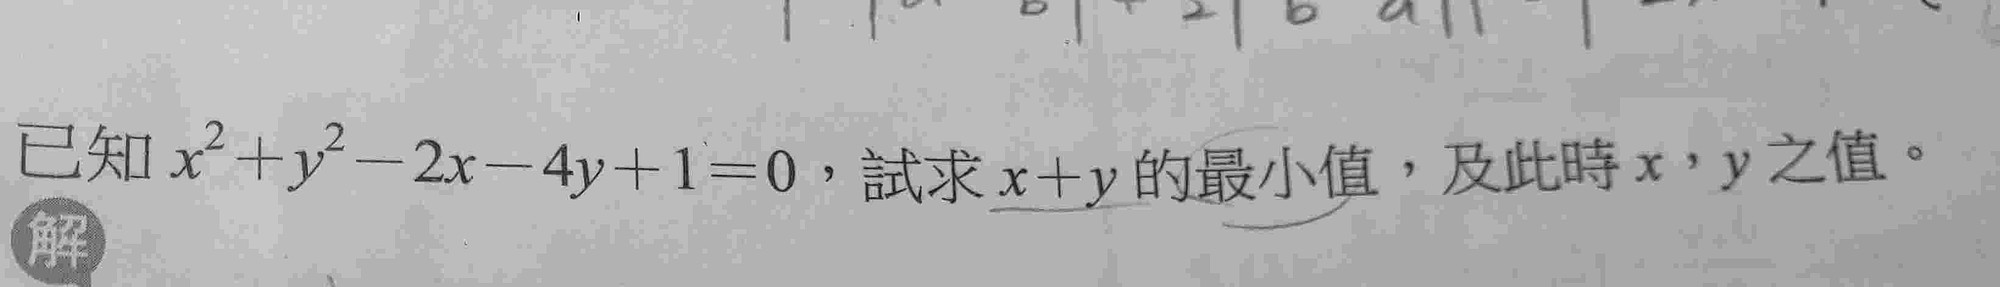 已知 x²+y²−2x−4y+1=0，試求 x+y 的最小值，及此時 x，y 之值。
解